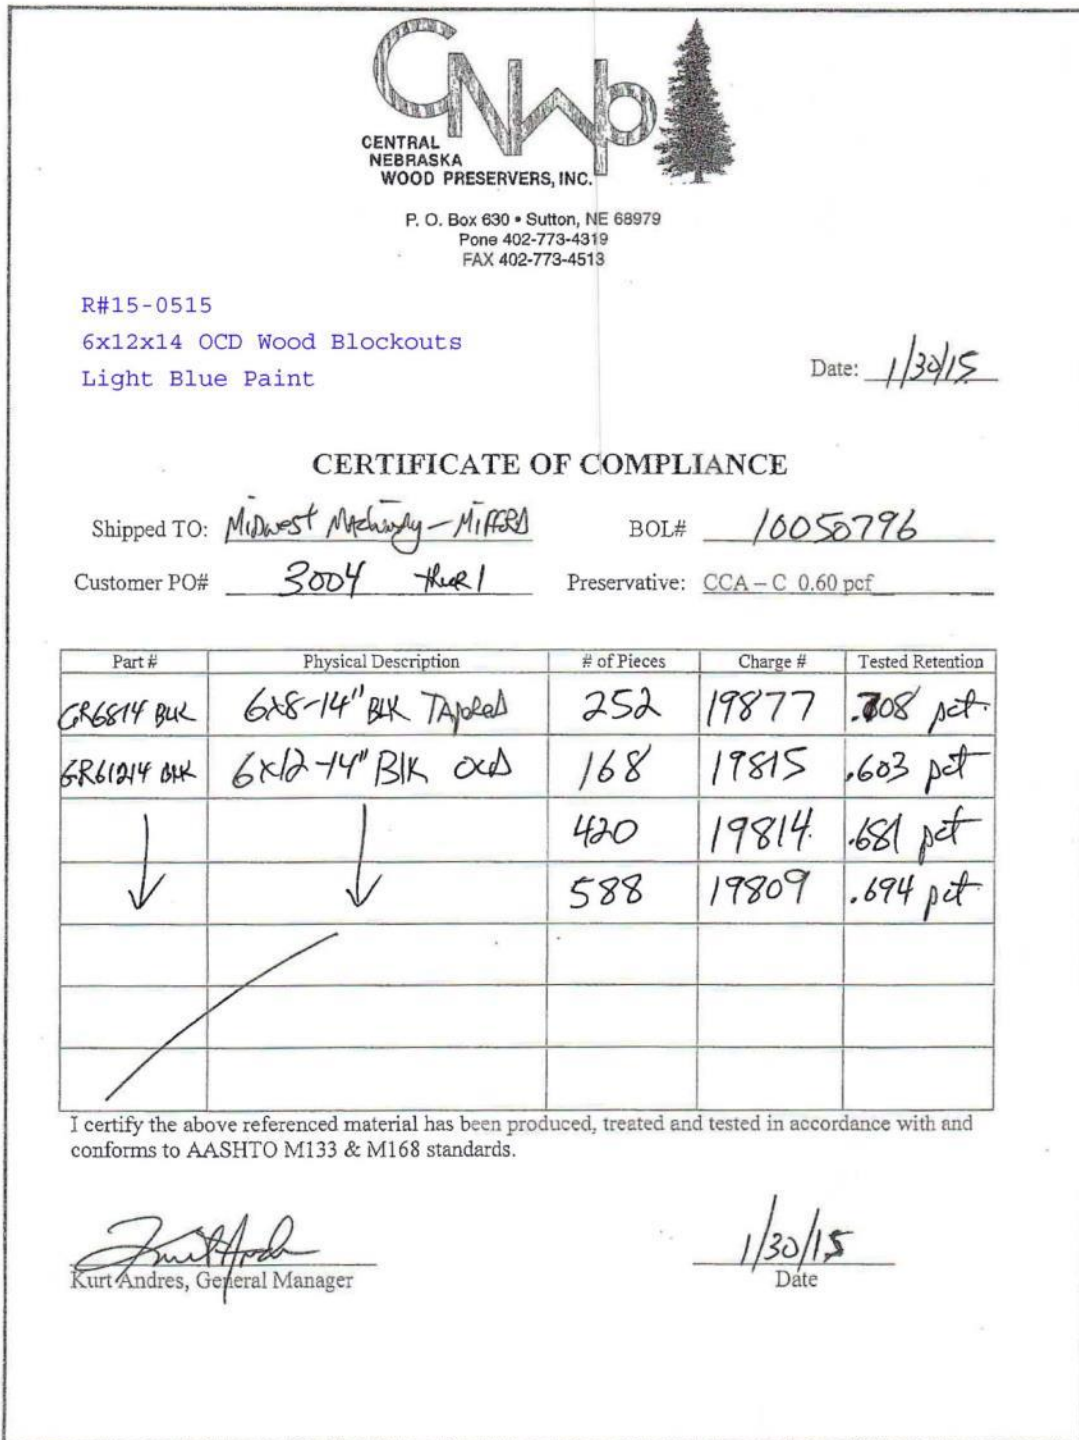 CNWP
CENTRAL
NEBRASKA
WOOD PRESERVERS, INC.
P. O. Box 630 • Sutton, NE 68979
Pone 402-773-4319
FAX 402-773-4513
R#15-0515
6x12x14 OCD Wood Blockouts
Light Blue Paint
Date: 1/30/15
CERTIFICATE OF COMPLIANCE
Shipped TO: Midwest Machinery - Milford BOL# 10050796
Customer PO# 3004 Preservative: CCA – C 0.60 pcf
Part # Physical Description # of Pieces Charge # Tested Retention
GR6814 BLK 6x8-14" BLK TApered 252 19877 .708 pcf
GR61214 BLK 6x12-14" Blk OCD 168 19815 .603 pcf
420 19814 .681 pcf
588 19809 .694 pcf
I certify the above referenced material has been produced, treated and tested in accordance with and
conforms to AASHTO M133 & M168 standards.
1/30/15
Kurt Andres, General Manager Date